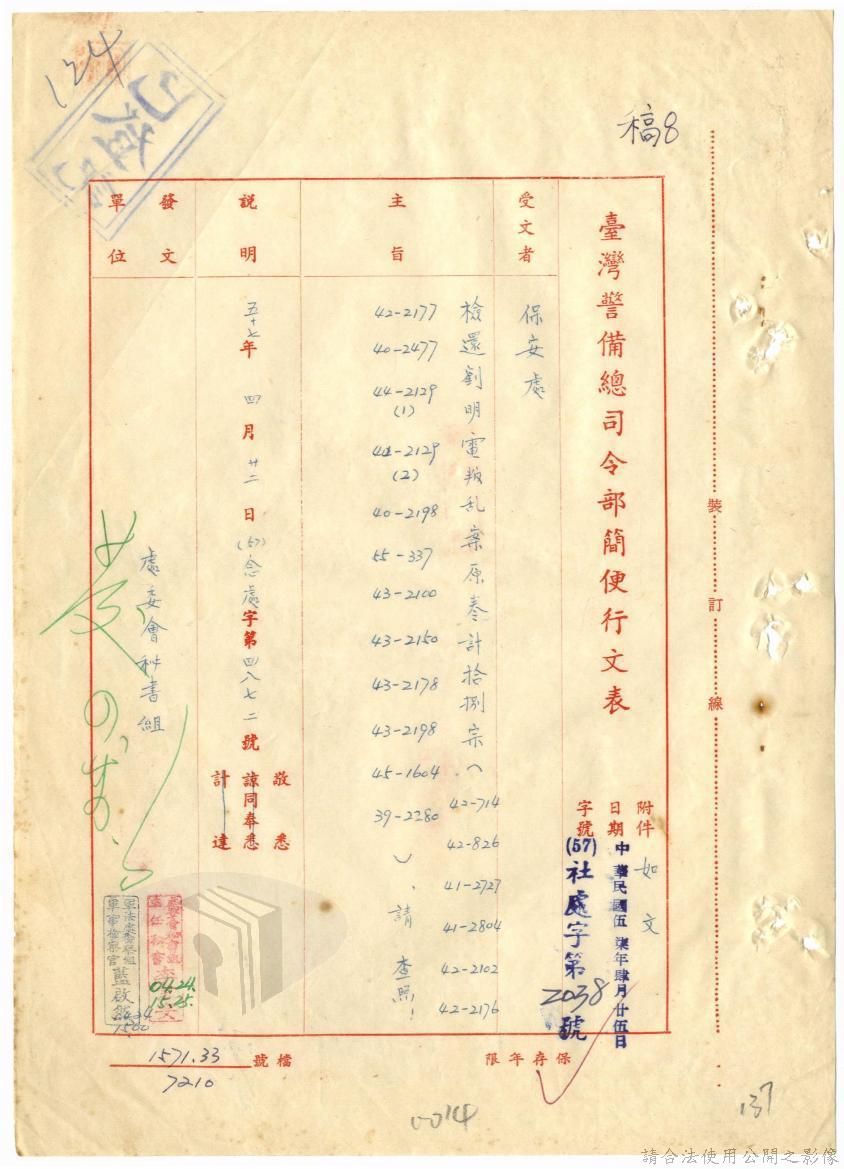 稿8
134
臺灣警備總司令部簡便行文表
附件 如文
日期 中華民國伍柒年肆月廿伍日
字號 (57)社處字第2038號
受文者
保安處
主旨
檢還劉明電叛乱案原卷計拾捌宗(42-714
42-826
41-2727
41-2804
42-2102
42-2176
42-2177
40-2477
44-2129(1)
44-2129(2)
40-2198
55-337
43-2100
43-2150
43-2178
43-2198
45-1604
39-2280
)、請查照!
說明
五十七年四月廿二日(57)念處字第四八七二號
敬悉
諒同奉悉
計達
發文單位
處委會秘書組
04.24.
15.25.
藍啟
1500
檔號 1571.33
7210
保存年限
裝訂線
0014
137
請合法使用公開之影像